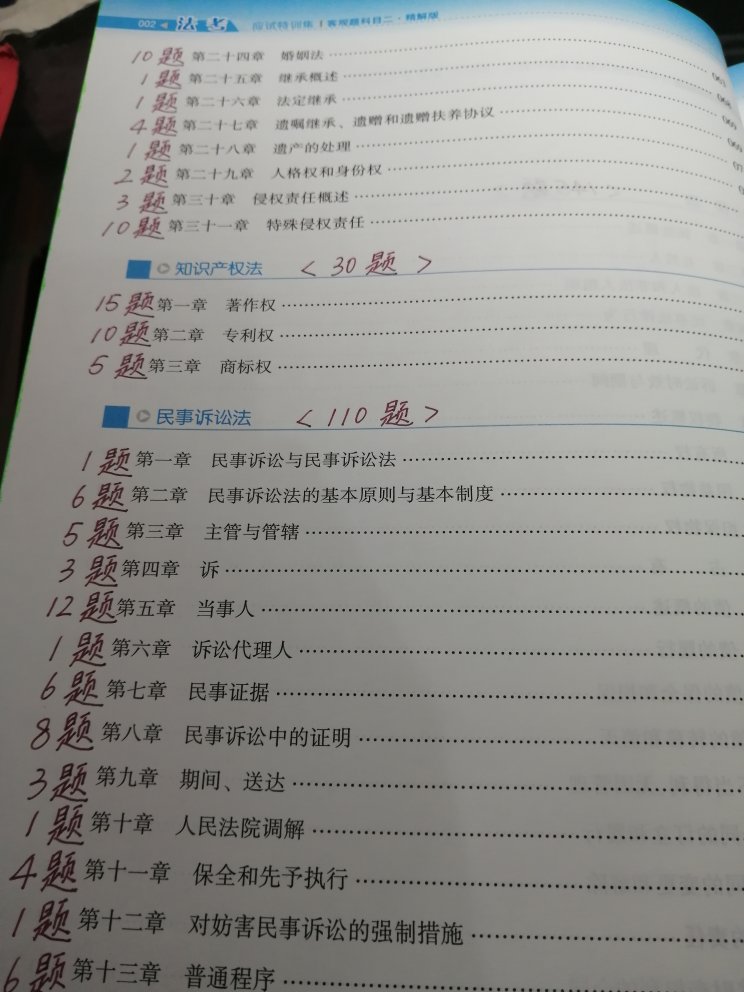 002 法考 应试特训集 | 客观题科目二·精解版
10题 第二十四章 婚姻法
1题 第二十五章 继承概述
1题 第二十六章 法定继承
4题 第二十七章 遗嘱继承、遗赠和遗赠扶养协议
1题 第二十八章 遗产的处理
2题 第二十九章 人格权和身份权
3题 第三十章 侵权责任概述
10题 第三十一章 特殊侵权责任
知识产权法 <30题>
15题 第一章 著作权
10题 第二章 专利权
5题 第三章 商标权
民事诉讼法 <110题>
1题 第一章 民事诉讼与民事诉讼法
6题 第二章 民事诉讼法的基本原则与基本制度
5题 第三章 主管与管辖
3题 第四章 诉
12题 第五章 当事人
1题 第六章 诉讼代理人
6题 第七章 民事证据
8题 第八章 民事诉讼中的证明
3题 第九章 期间、送达
1题 第十章 人民法院调解
4题 第十一章 保全和先予执行
1题 第十二章 对妨害民事诉讼的强制措施
6题 第十三章 普通程序